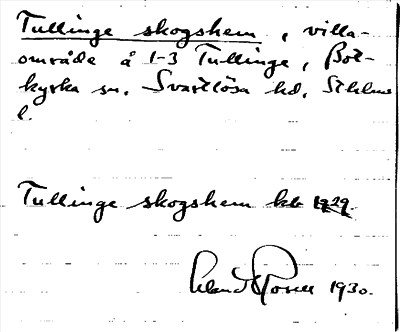 Tullinge skogshem, villa-
område å 1-3 Tullinge, Bot-
kyrka sn. Svartlösa hd. Sthlms
l.
Tullinge skogshem kb 1929.
1930.